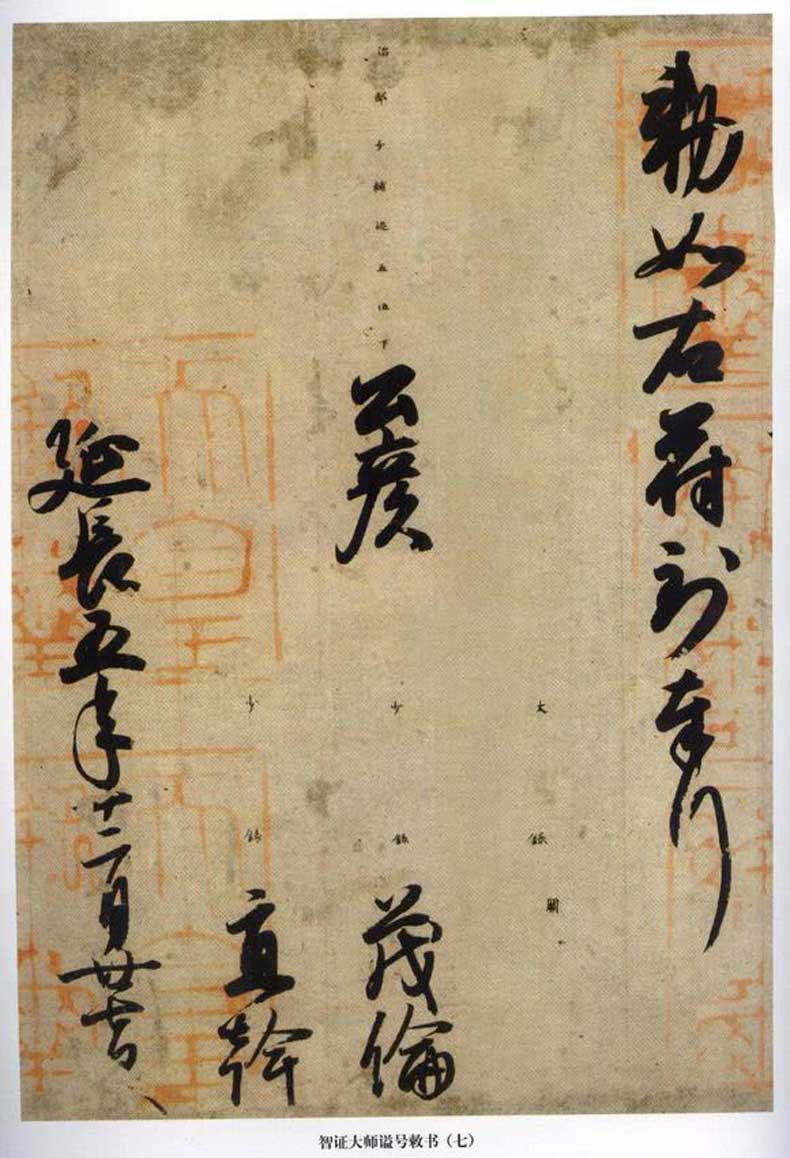 勅如右符到奉行
大録闕
治部少輔從五位下公
少録茂倫
少録直幹
延長五年十二月廿七日
智证大师谥号敕书（七）